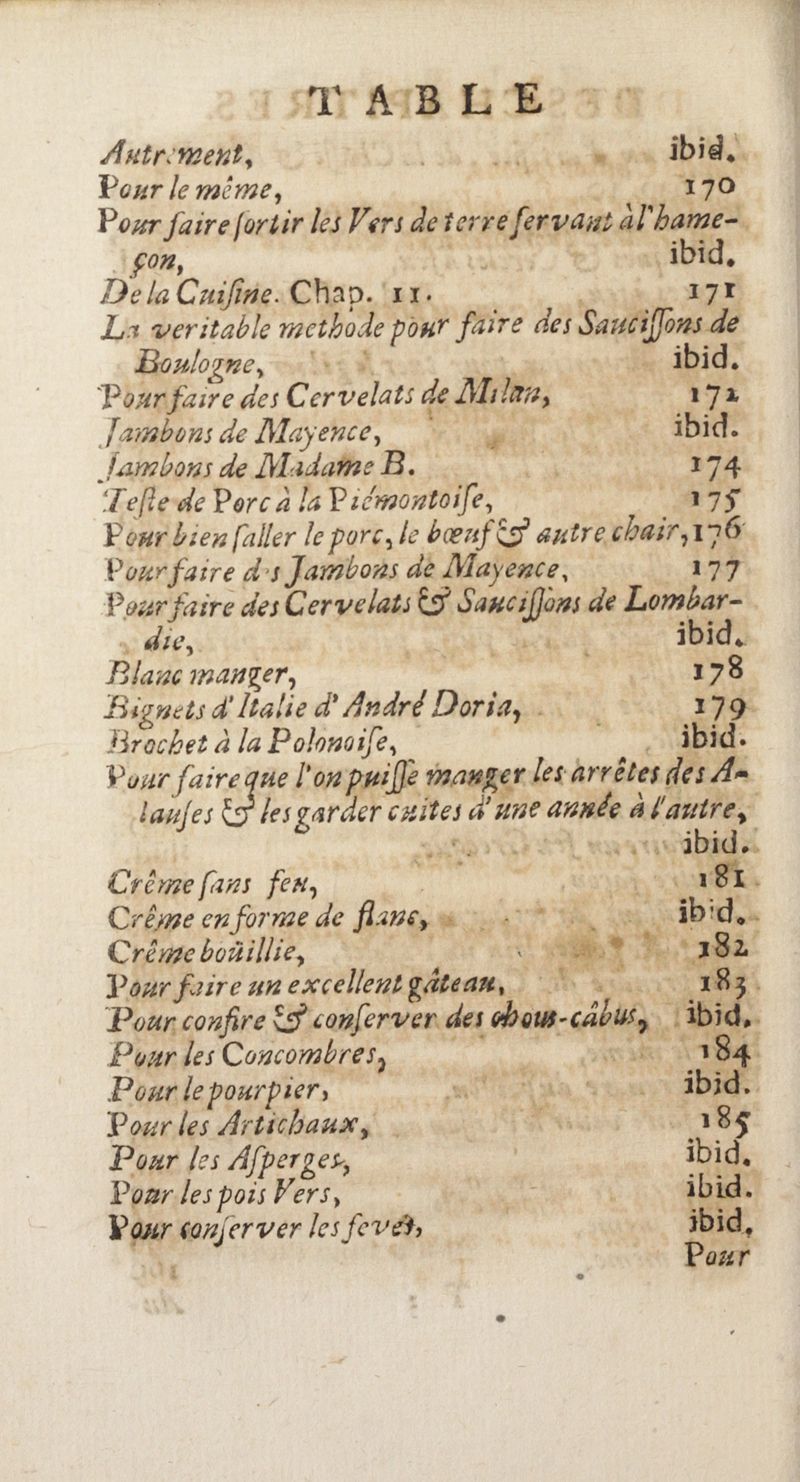 TABLE
Autrement, ibid.
Pour le même, 170
Pour faire ſortir les Vers de terre ſervant à l'hame-
çon, ibid.
De la Cuiſine. Chap. 11. 171
La veritable methode pour faire des Sauciſſons de
Boulogne, ibid.
Pour faire des Cervelats de Milan, 172
Jambons de Mayence, ibid.
Jambons de Madame B. 174
Teſte de Porc à la Piémontoiſe, 175
Pour bien ſaller le porc, le bœuf & autre chair, 176
Pour faire des Jambons de Mayence, 177
Pour faire des Cervelats & Sauciſſons de Lombar-
die, ibid.
Blanc manger, 178
Bignets d'Italie d'André Doria, 179
Brochet à la Polonoiſe, ibid.
Pour faire que l'on puiſſe manger les arrêtes des A-
lauſes & les garder cuites d'une année à l'autre,
ibid.
Crême ſans feu, 181
Crême en forme de flanc, ibid.
Crême boüillie, 182
Pour faire un excellent gâteau, 183
Pour confire & conſerver des chous-câbus, ibid.
Pour les Concombres, 184
Pour le pourpier, ibid.
Pour les Artichaux, 185
Pour les Aſperges, ibid.
Pour les pois Vers, ibid.
Pour conſerver les fevés, ibid.
Pour